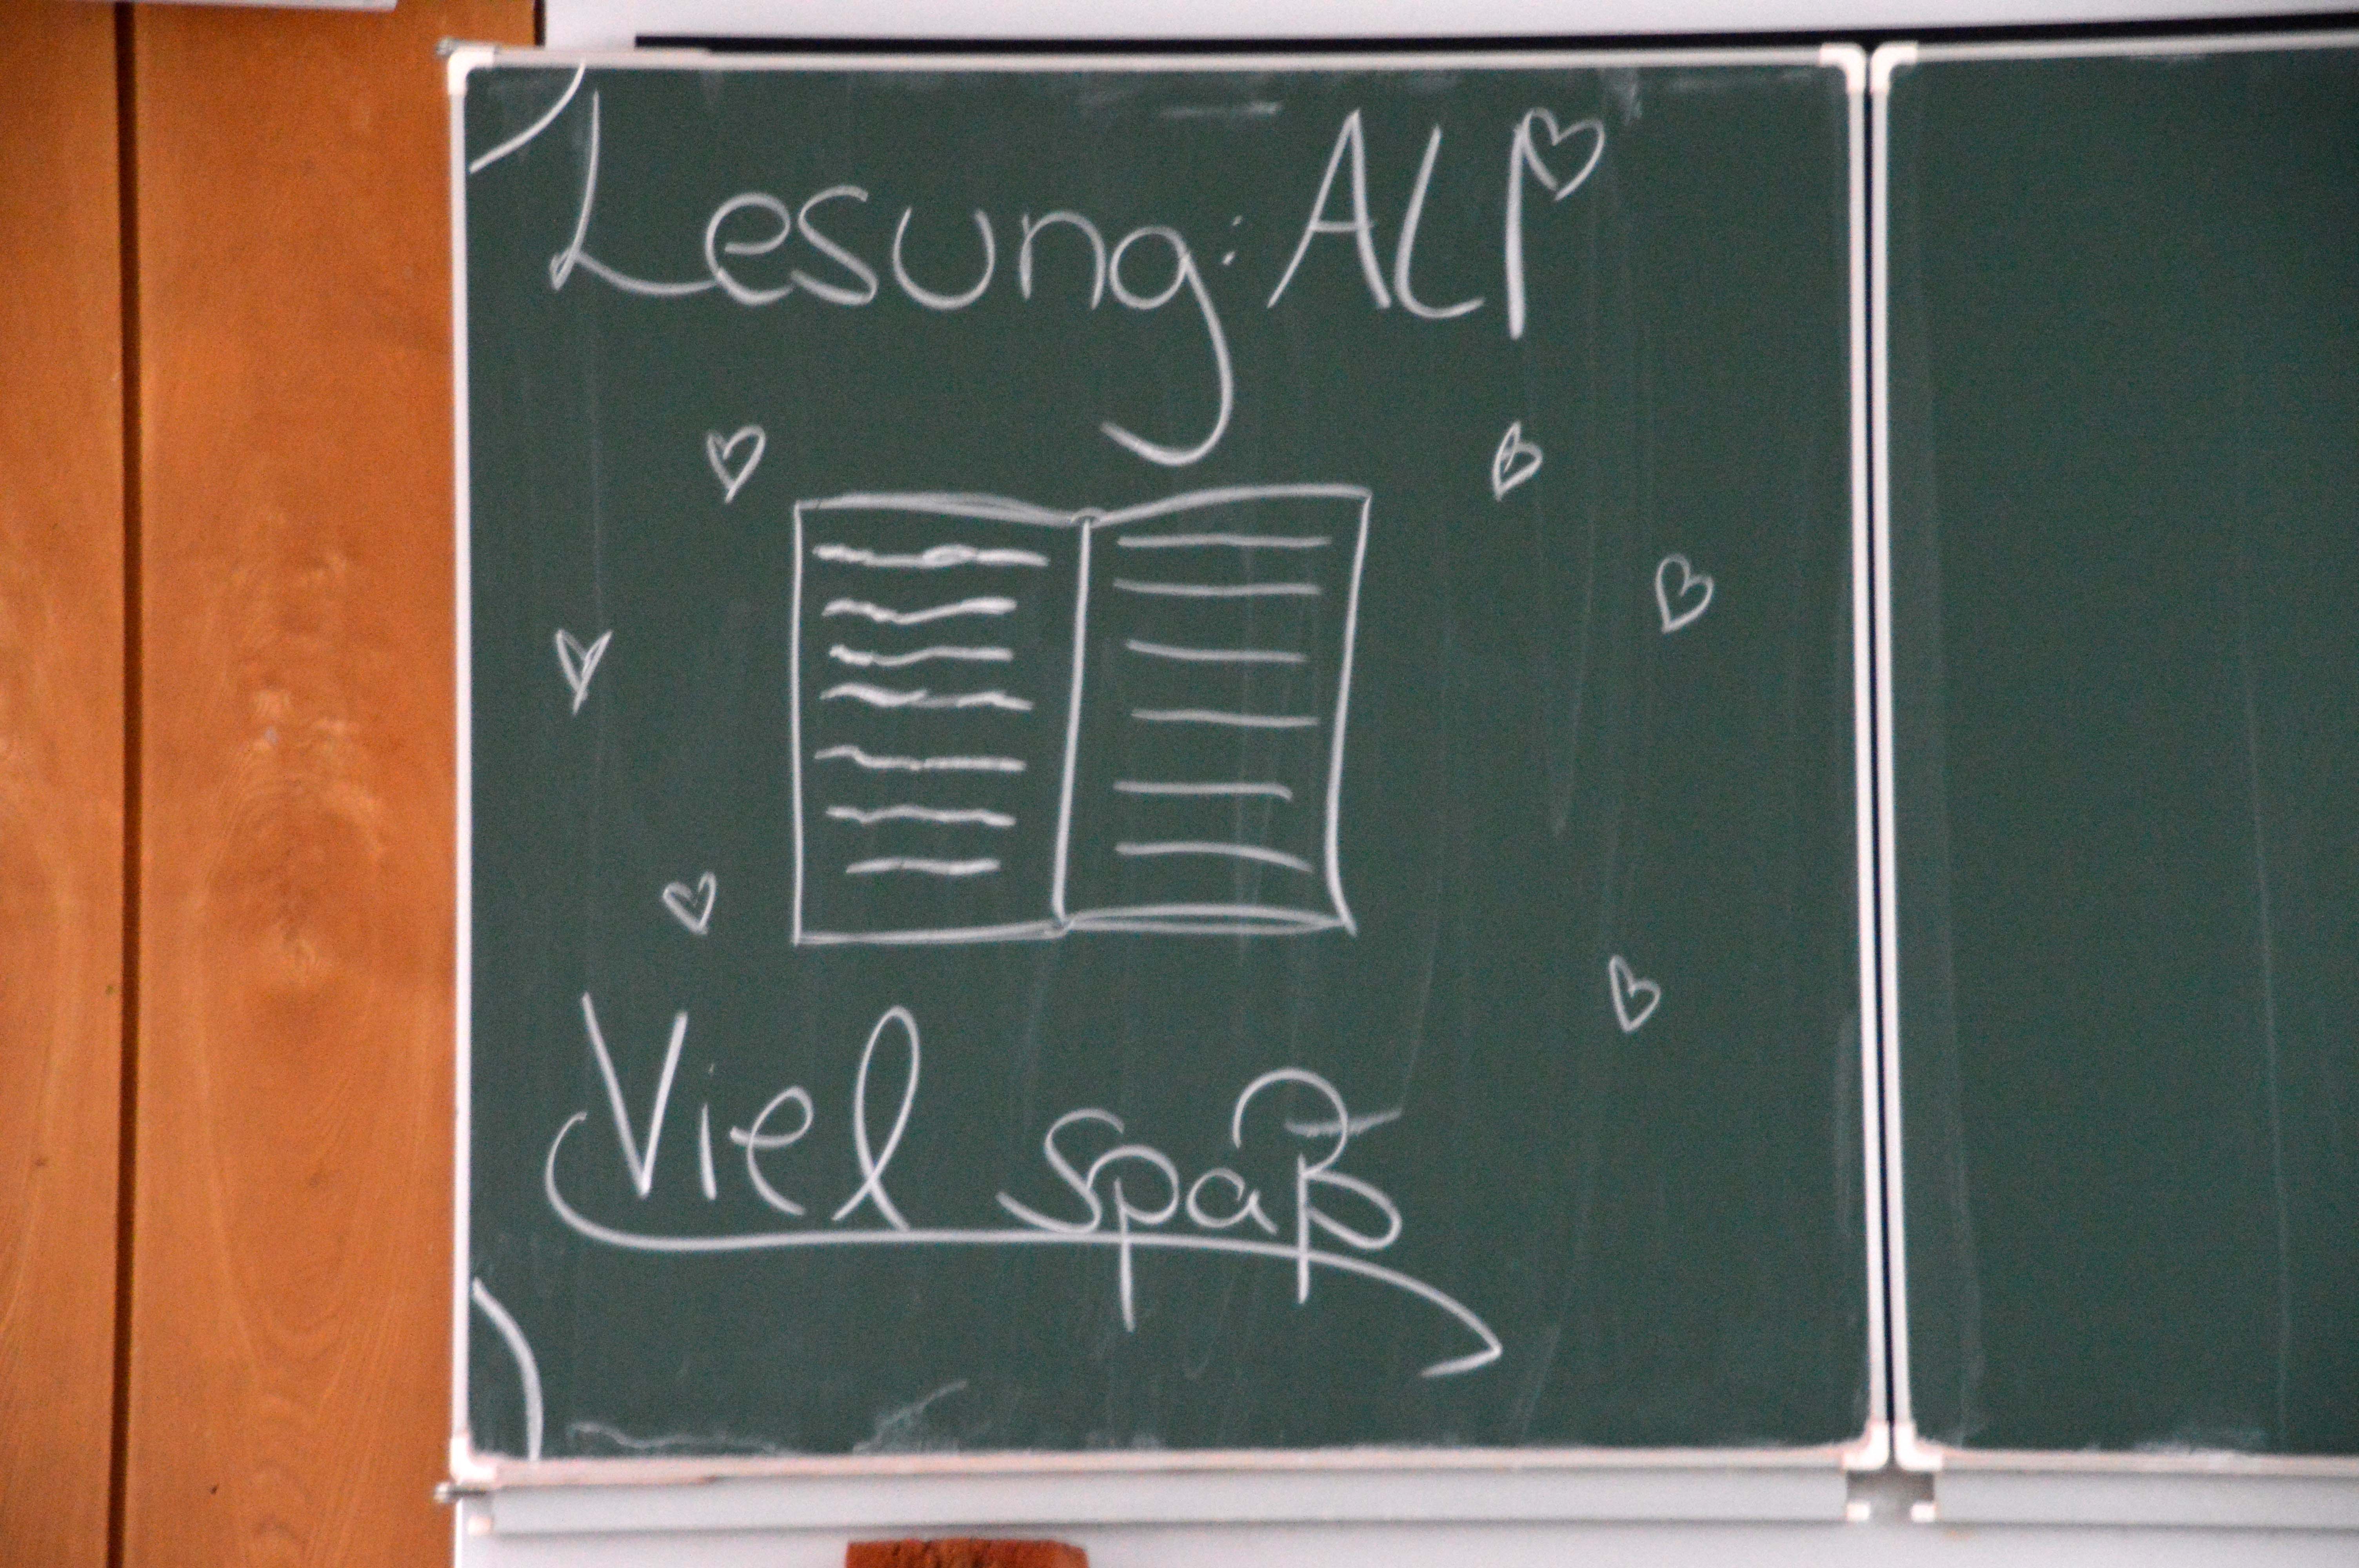 Lesung: ALP
Viel spaß